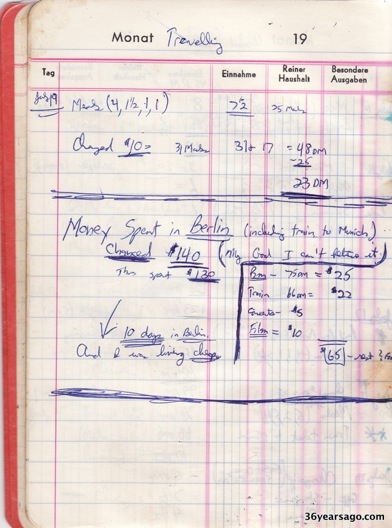 Monat Travelling 19
Tag Einnahme Reiner Haushalt Besondere Ausgaben
July 9 Marks (4, 1½, 1, 1) 7½ 25 Marks
Changed $10 = 31 Marks 31 + 17 = 48 DM
- 25
23 DM
Money Spent in Berlin (including train to Munich)
Changed $140 (My God I can't believe it)
Thus spent $130
75 DM = $25
Train 66 DM = $22
$5
Film = $10
10 days in Berlin.
And I was living cheap
$65 - rest
36yearsago.com